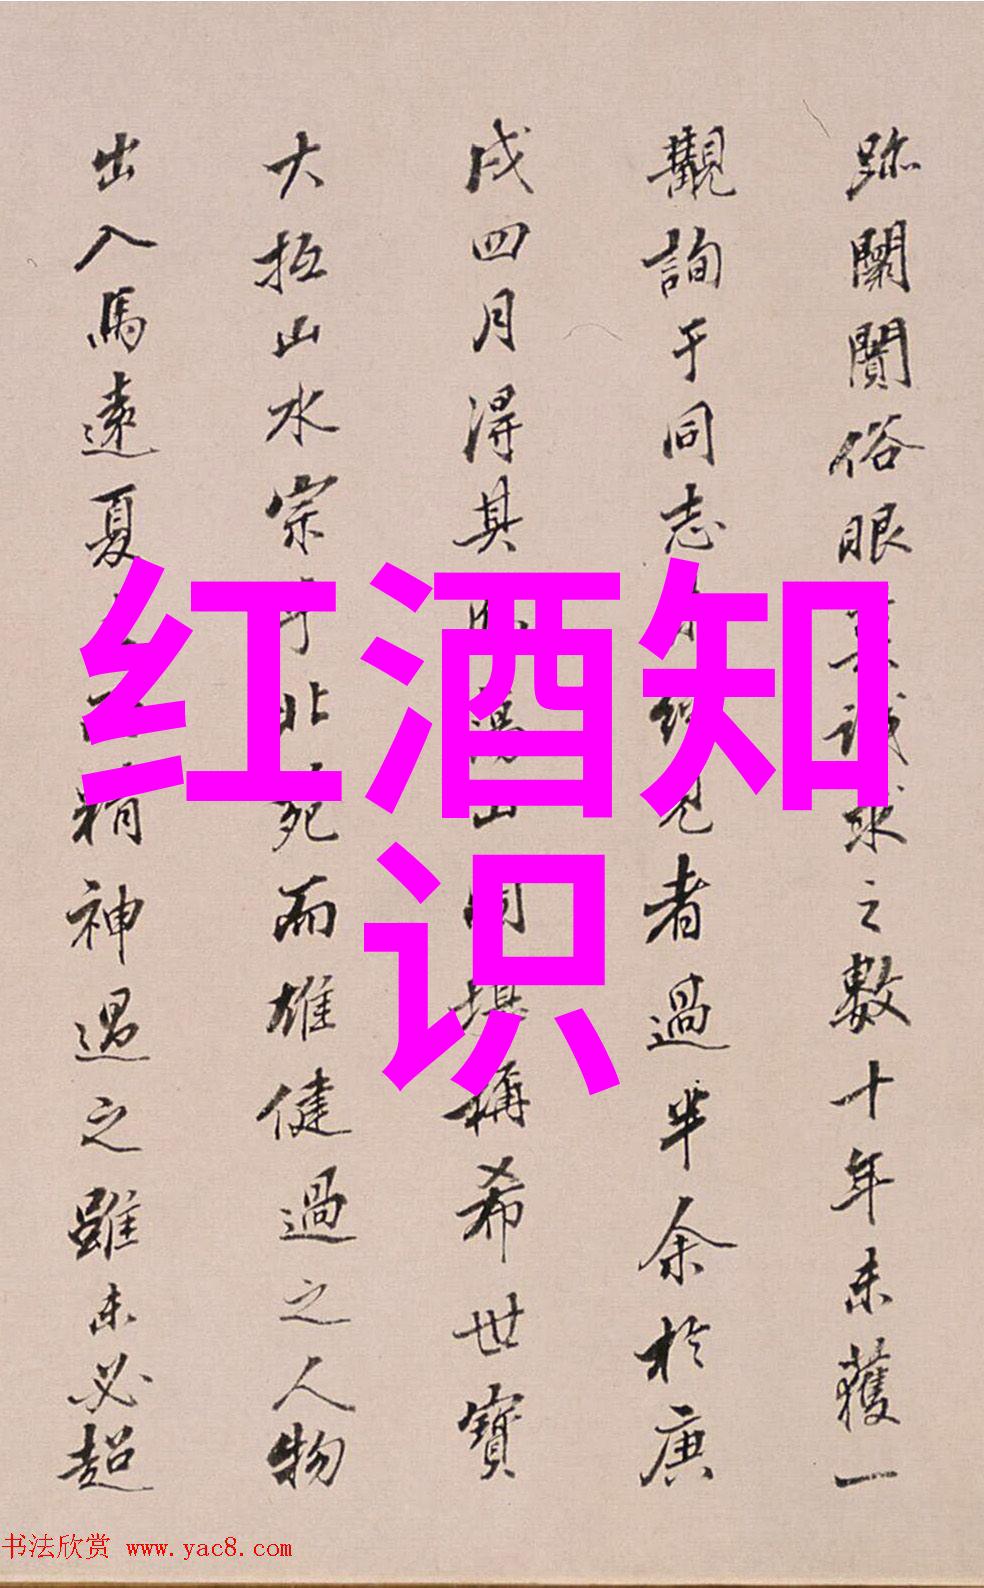 跡闤闠俗眼真識求之數十年未獲一
觀詢于同志亦絕見者過半余於庚
戌四月淂其山圖堪稱希世寶
大抵山水宗于北苑而雄健過之人物
出入馬遠夏精神過之雖未必超
红酒知
识
书法欣赏 www.yac8.com